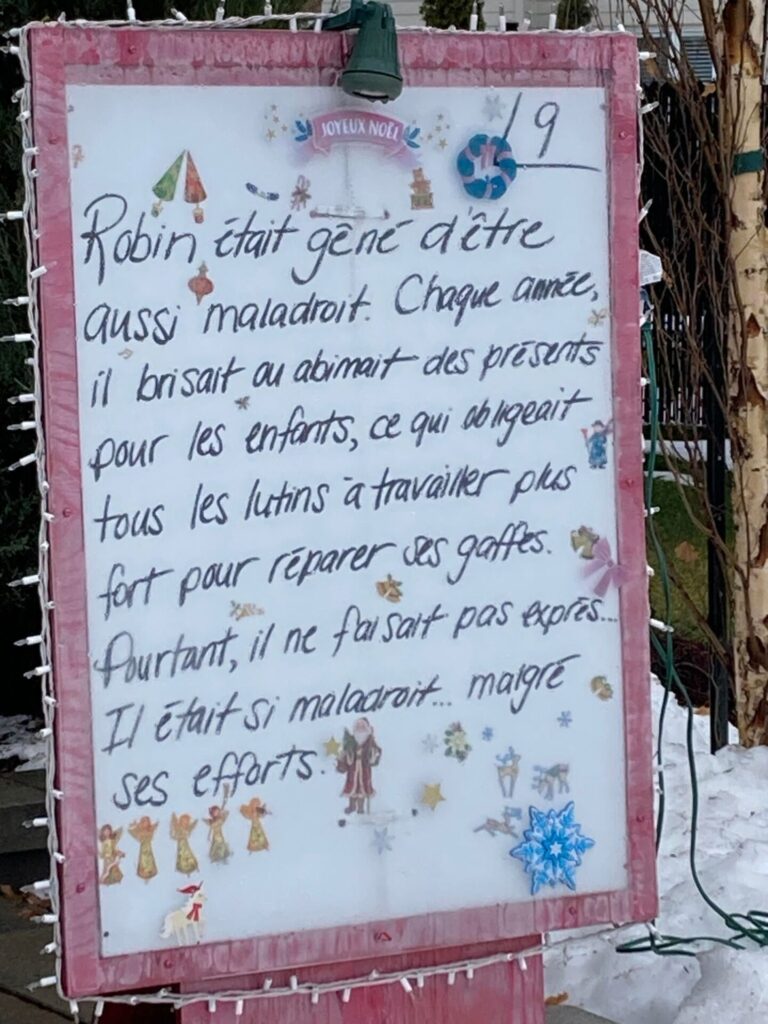 JOYEUX NOËL
19
Robin était gêné d'être
aussi maladroit. Chaque année,
il brisait ou abimait des présents
pour les enfants, ce qui obligeait
tous les lutins à travailler plus
fort pour réparer ses gaffes.
Pourtant, il ne faisait pas exprès...
Il était si maladroit... malgré
ses efforts.